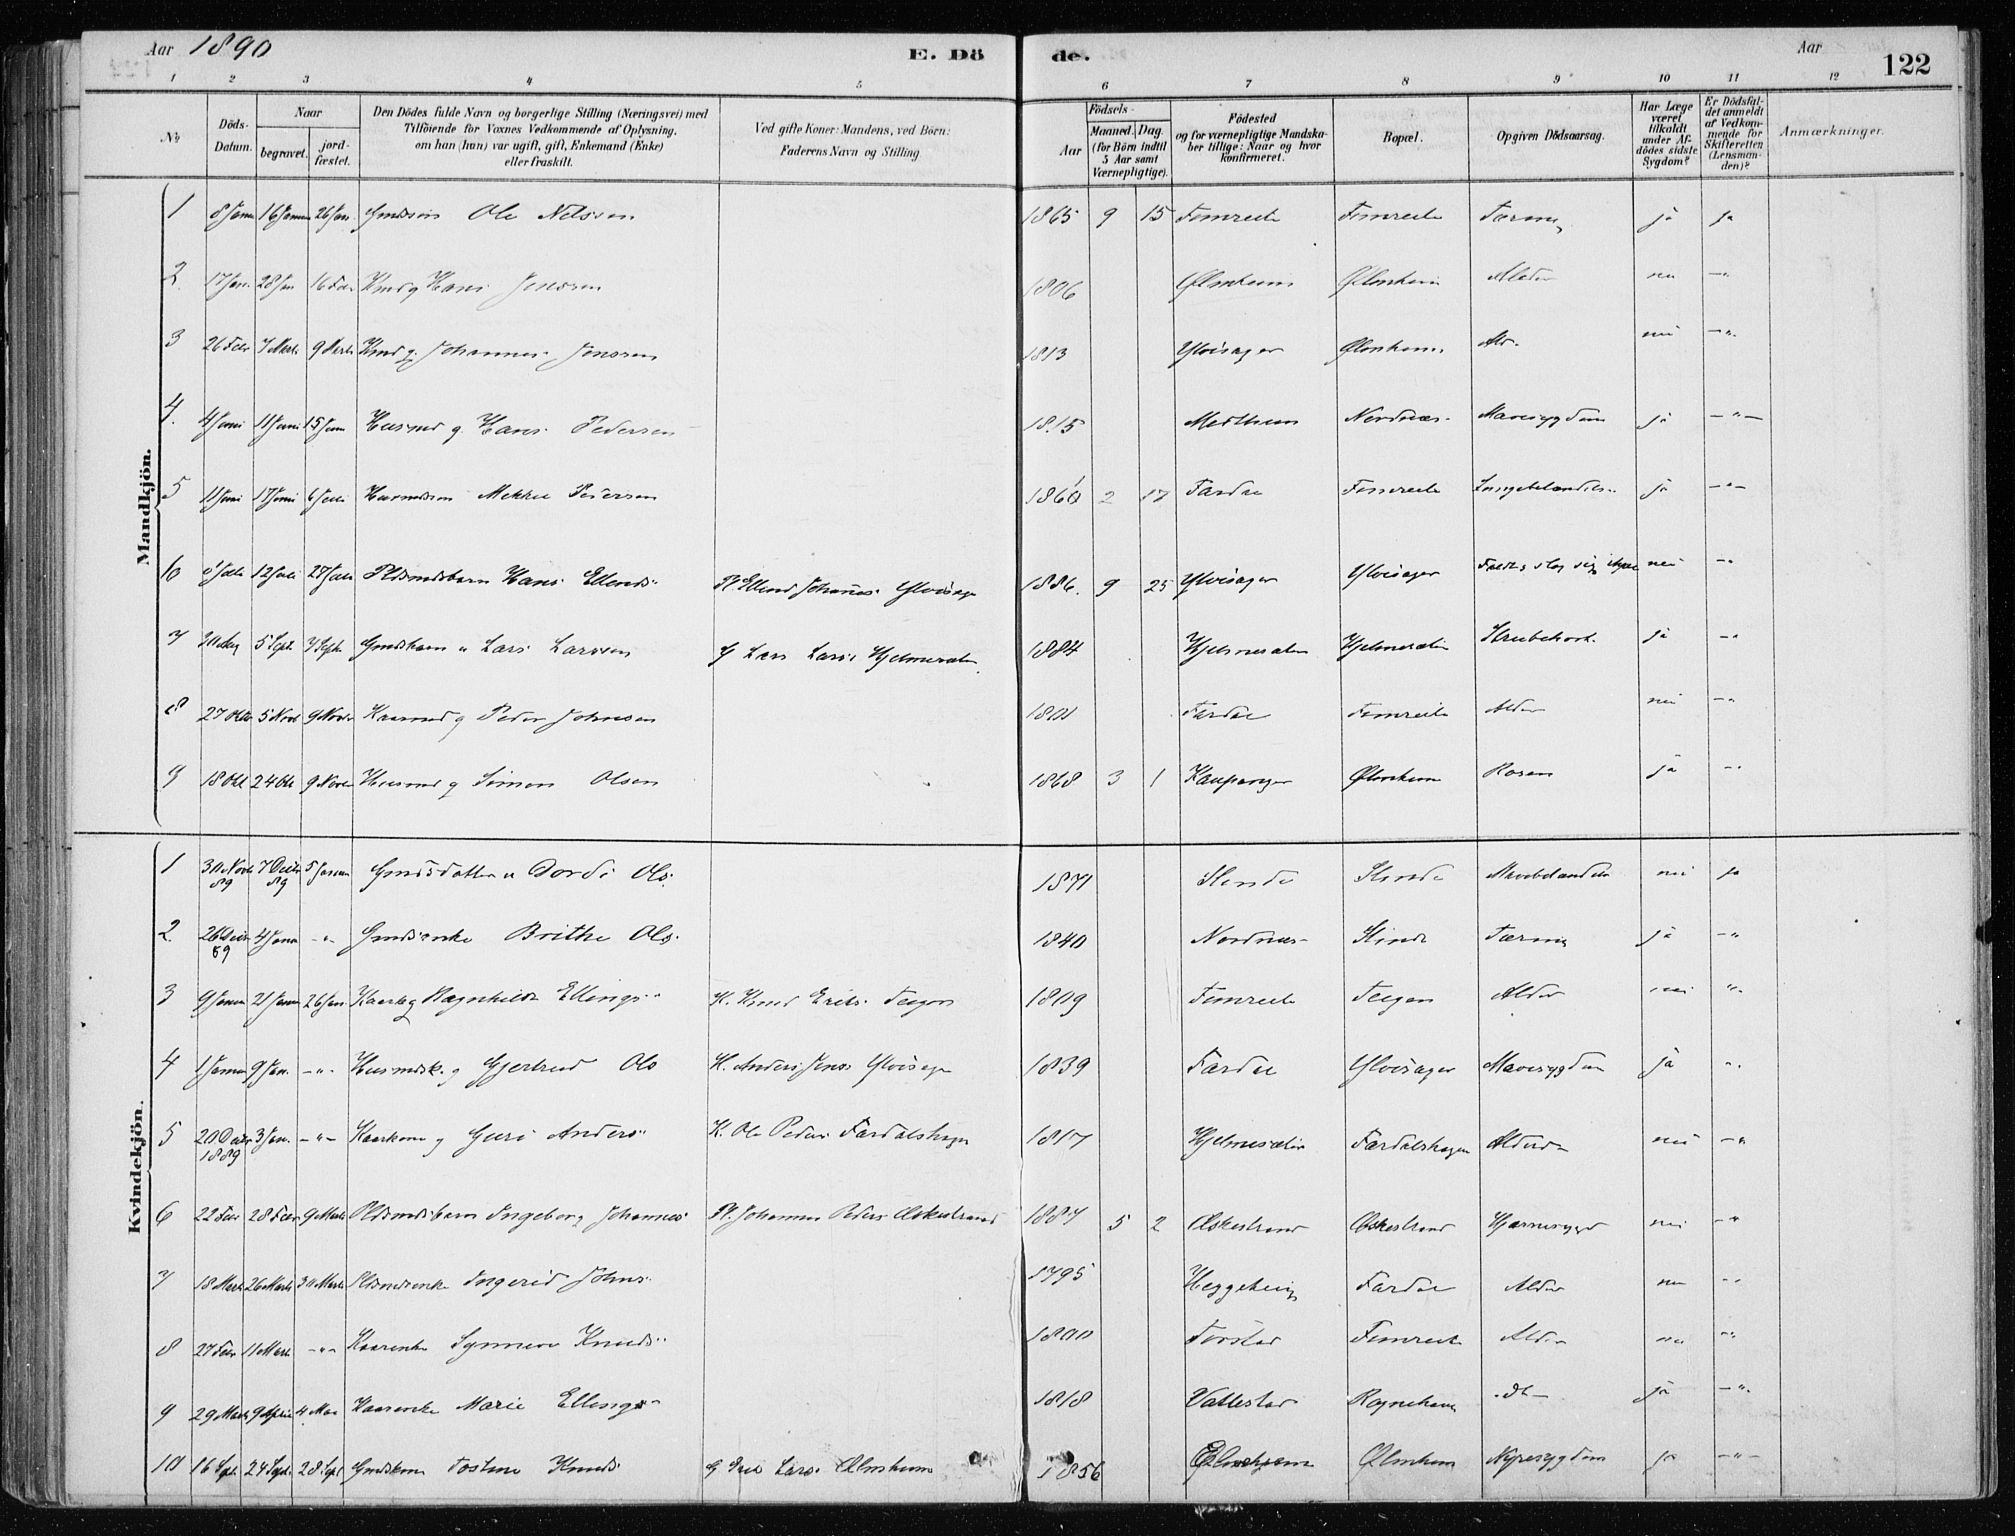 Aar 1890 E. Dö de. Aar 122
1 2 3 4 5 6 7 8 9 10 11 12
No. Döds-Datum. Naar begravet. jordfæstet. Den Dödes fulde Navn og borgerlige Stilling (Næringsvei) med Tilföiende for Voxnes Vedkommende af Oplysning, om han (hun) var ugift, gift, Enkemand (Enke) eller fraskilt. Ved gifte Koner: Mandens, ved Börn: Faderens Navn og Stilling. Födsels- Aar Maaned. Dag. (for Börn indtil 5 Aar samt Værnepligtige). Födested og for værnepligtige Mandskaber tillige: Naar og hvor konfirmeret. Bopæl. Opgiven Dödsaarsag. Har Læge været tilkaldt under Afdödes sidste Sygdom? Er Dödsfaldet anmeldt af Vedkommende for Skifteretten (Lensmanden)? Anmærkninger.
Mandkjön.
1 8 Janu 16 Janu 26 Jan Gmdssön Ole Nilssen 1865 9 15 Fimreite Fimreite Tæring ja ja
2 17 Jan. 28 Jan 16 Febr Kmd g Hans Jensen 1806 Ølmheim Ølmheim Alder nei -"-
3 26 Febr 7 Marts 9 Marts Kmd g. Johannes Jensen 1813 Ylvisager Ølmheim Ald. nei -"-
4. 4 Juni 11 Juni 15 Juni Husmd g. Hans Pedersen 1815 Medheim Nordnæs Mavesygdom ja -"-
5 11 Juni 17 Juni 6 Juli Husmdssön Mikkel Pedersen 1860 2 17 Fardal Fimreite Lungebetændelse ja -"-
6 5 Juli 12 Juli 27 Juli Pldsmdsbarn Hans Ellends. Pl. Ellend Johannes. Ylvisager 1886. 9 25 Ylvisager Ylvisager Faldt, slog sig nei -"-
7 30 Aug 5 Sept. 7 Septr Gmdsbarn Lars Larssen G Lars Lars. Hjelmesæter. 1884 Hjelmesæter Hjelmesæter Strubehoste. ja -"-
8 27 Oktbr 5 Novb 9 Novbr Kaarmd g Peder Johnsen 1801 Fardal Fimreite Alder nei -"-
9 18 Okt 24 Okt 9 Novbr Husmd g Simon Olsen 1868 3 1 Kaupanger Ølmheim Rosen ja -"-
Kvindekjön.
1 30 Novb 89 7 Decbr 89 5 Januar Gmdsdatter u Dorde Ols. 1871 Slinde Slinde Mavebetændelse nei ja
2. 26 Decbr 89 4 Janu -"- Gmdsenke Brithe Ols. 1840 Nordnæs Slinde Tæring ja -"-
3 9 Janu 21 Janu 26 Jan. Kaarkg Ragnhilda Ellings. K. Knud Eriks. Teigen 1809 Fimreite Teigen Alder nei "-
4 1 Januar 9 Jan. -"- Husmdsk. g Gjertrud Ols H. Anders Jens. Ylvisager 1839 Fardal Ylvisager Mavesygdom ja "-
5 20 Decbr 1889 3 Jan. -"- Kaarkone g Guri Anders. K. Ole Peders. Fardalshagen 1817 Hjelmesæter Fardalshagen Alderd. nei -"-
6 22 Febr 28 Febr 9 Marts Pldsmdsbarn Ingeborg Johannes. Pl. Johannes Peders. Olskestrand 1887 5 2 Olskestrand Olskestrand Hjernesygd nei -"-
7 18 Marts 26 Marts 30 Marts Pldsmdsenke Ingerid Johns. 1795 Heggehei Fardal Alder nei -"-
8 27 Febr 11 Marts -"- Kaarenke Synneve Knuds. 1800 Torstad Fimreite Alder nei -"-
9 29 Marts 9 April 4 Mai Kaarenke Marie Ellings. 1818 Vallestad Rognehaug dt- ja -"-
10 16 Sept. 24 Septr. 28 Sept Gmdskone Tostine Knuds. G Lars. Ølmheim 1856 Ølmheim Ølmheim Nyresygdom ja -"-